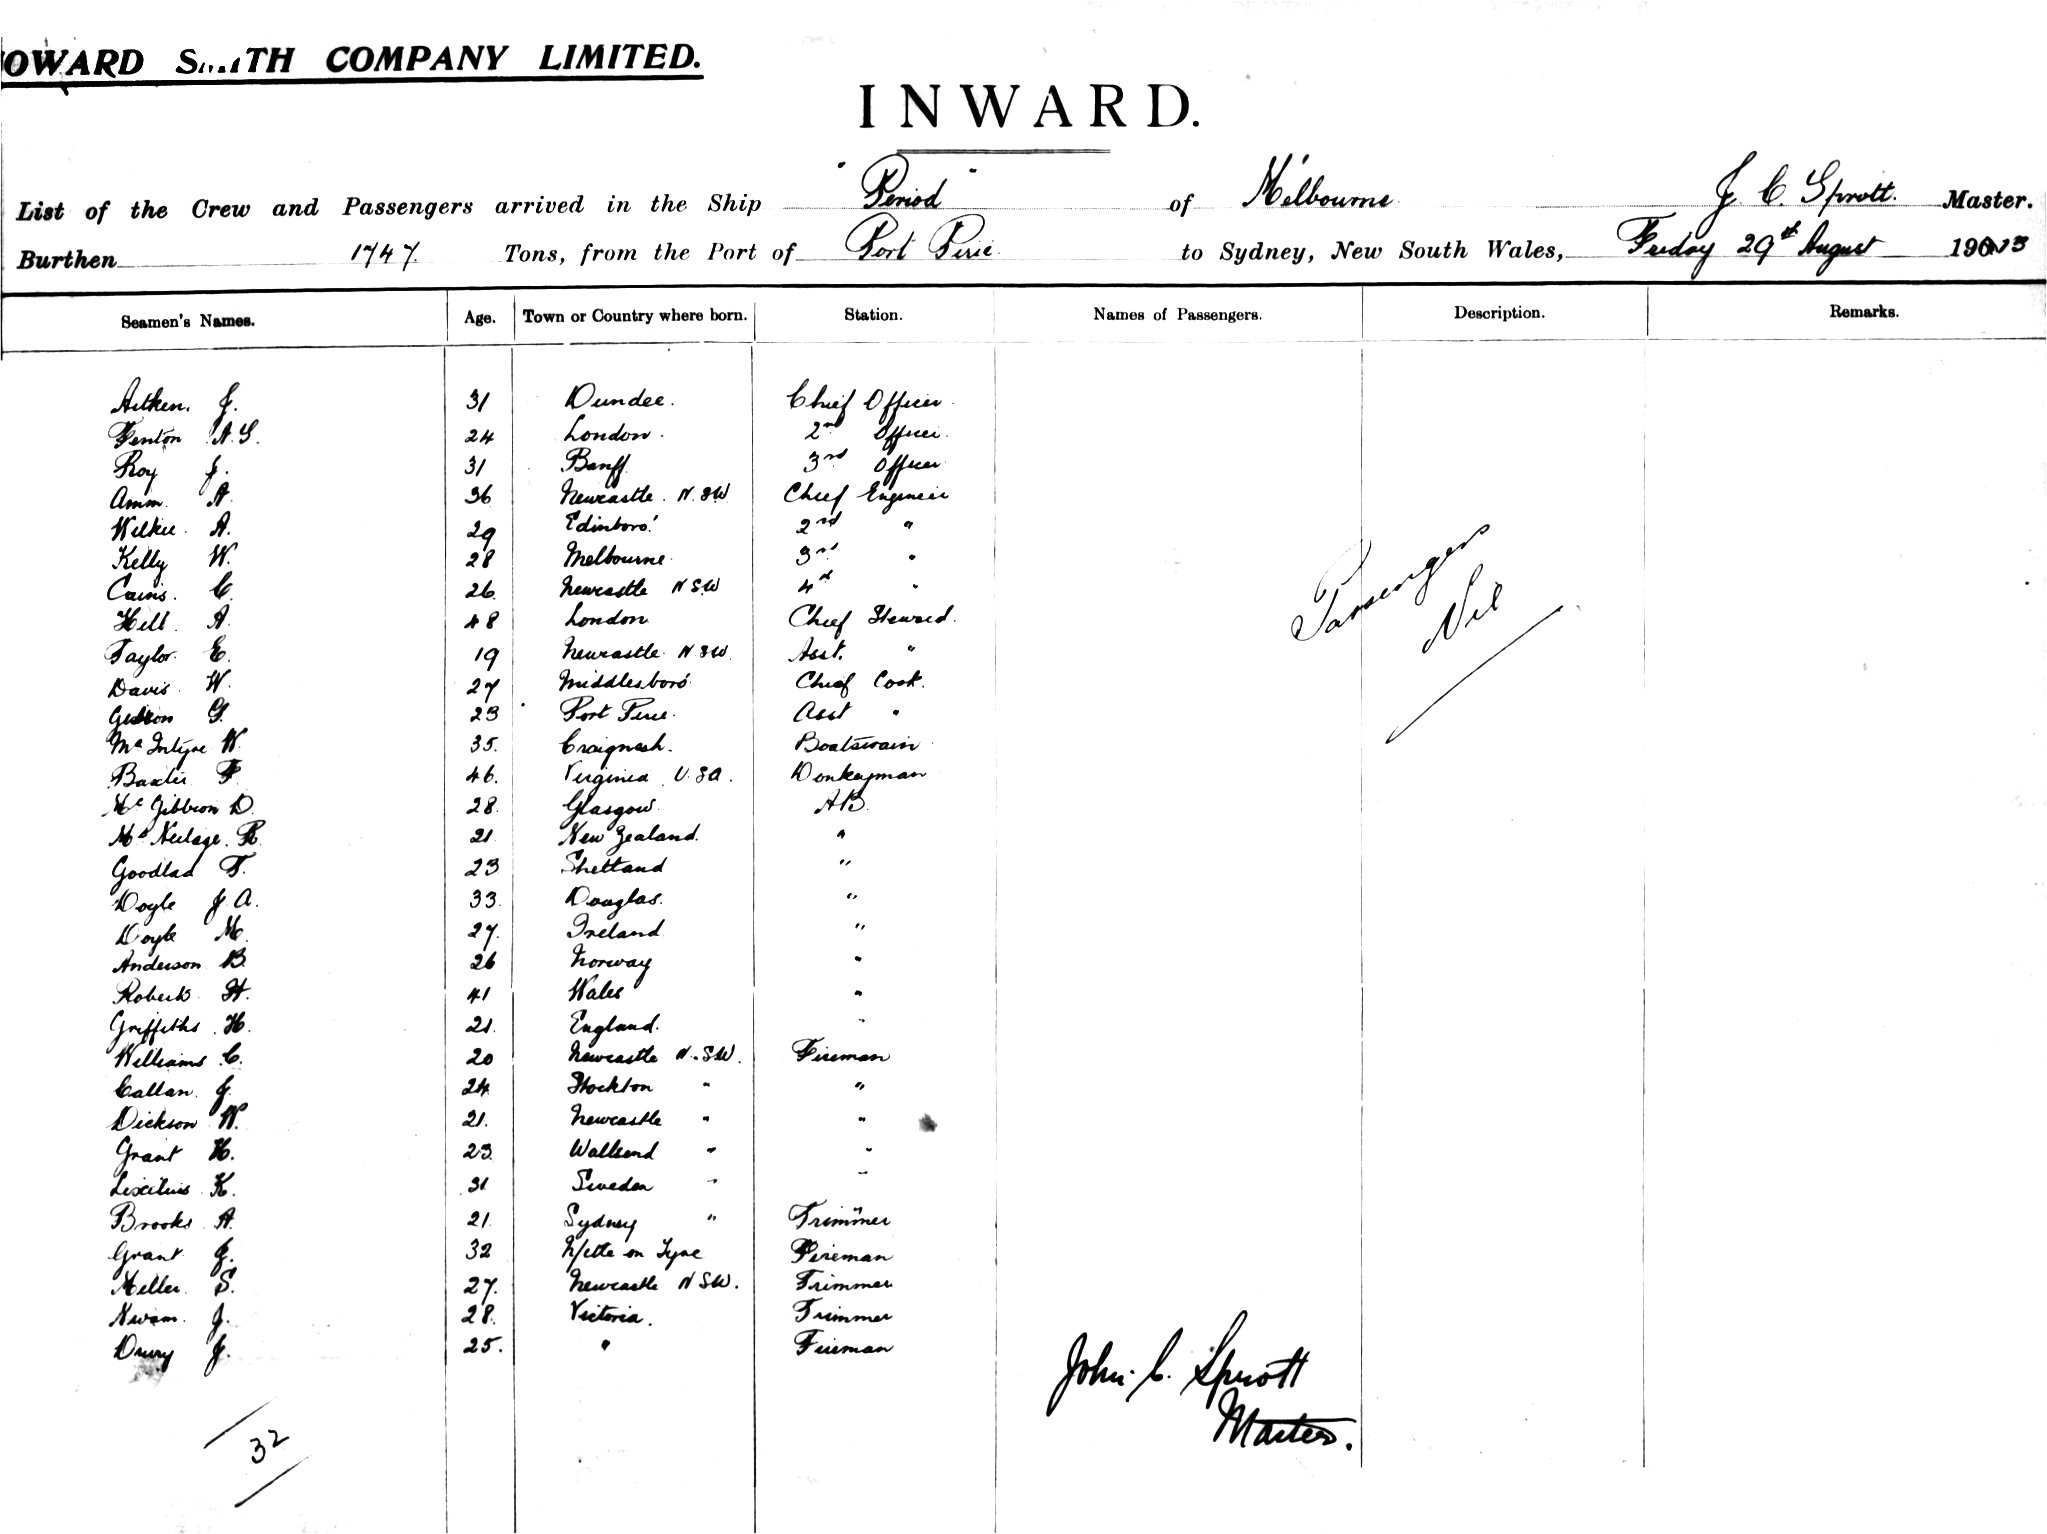 OWARD SMITH COMPANY LIMITED.
INWARD.
List of the Crew and Passengers arrived in the Ship "Period" of Melbourne J. C. Sprott. Master.
Burthen 1747. Tons, from the Port of Port Pirie to Sydney, New South Wales, Friday 29th August 1913
Seamen's Names. Age. Town or Country where born. Station. Names of Passengers. Description. Remarks.
Aitken. J. 31 Dundee. Chief Officer
Fenton A.G. 24 London. 2nd Officer.
Roy J. 31 Banff 3rd Officer
Amm. A. 36 Newcastle. N.SW Chief Engineer
Wilkie A. 29 Edinboro' 2nd "
Kelly W. 28 Melbourne. 3rd "
Cains. C. 26. Newcastle N SW 4th "
Hill. A. 48 London Chief Steward.
Taylor. E. 19 Newcastle N SW. Asst. "
Davis. W. 27 Middlesboro' Chief Cook.
G. 23 Port Pirie. Asst "
McIntyre W. 35. Craignesh. Boatswain
Baxter F. 46. Virginia U.S.A. Donkeyman
McGibbon D. 28. Glasgow. AB.
R. 21. New Zealand. "
Goodlad T. 23 Shetland "
Doyle J A. 33. Douglas. "
Doyle M. 27. Ireland "
Anderson B. 26 Norway "
Roberts H. 41 Wales "
Griffiths H. 21. England. "
Williams C. 20 Newcastle N.SW. Fireman
Callan. J. 24. Stockton " "
Dickson W. 21. Newcastle " "
Grant H. 23. Wallsend " "
K. 31 Sweden " "
Brooks A. 21. Sydney " Trimmer
Grant J. 32 N/ctle on Tyne Fireman
Miller. S. 27. Newcastle N SW. Trimmer
J. 28. Victoria. Trimmer
Drury J. 25. " Fireman
Passengers
Nil
John. C. Sprott
Master.
32